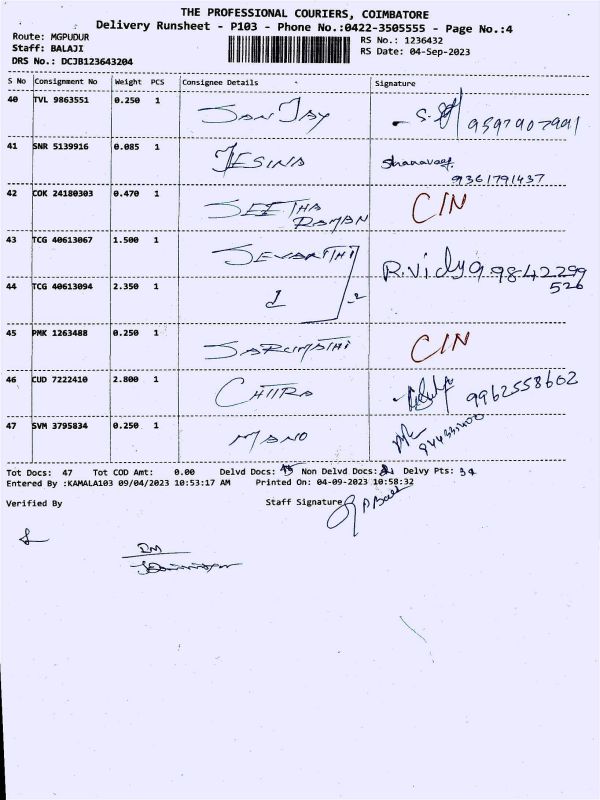 THE PROFESSIONAL COURIERS, COIMBATORE
Delivery Runsheet - P103 - Phone No.:0422-3505555 - Page No.:4
Route: MGPUDUR
RS No.: 1236432
Staff: BALAJI
RS Date: 04-Sep-2023
DRS No.: DCJB123643204
S No Consignment No Weight PCS Consignee Details Signature
40 TVL 9863551 0.250 1 SANJAY
41 SNR 5139916 0.085 1 JESINA 9361791437
42 COK 24180303 0.470 1 SEETHA RAMAN CIN
43 TCG 40613067 1.500 1 R.Vidya 9842299
44 TCG 40613094 2.350 1 526
45 PMK 1263488 0.250 1 CIN
46 CUD 7222410 2.800 1 CHITRA 9962558602
47 SVM 3795834 0.250 1 MANO
Tot Docs: 47 Tot COD Amt: 0.00 Delvd Docs: Non Delvd Docs: Delvy Pts: 34
Entered By :KAMALA103 09/04/2023 10:53:17 AM Printed On: 04-09-2023 10:58:32
Verified By Staff Signature